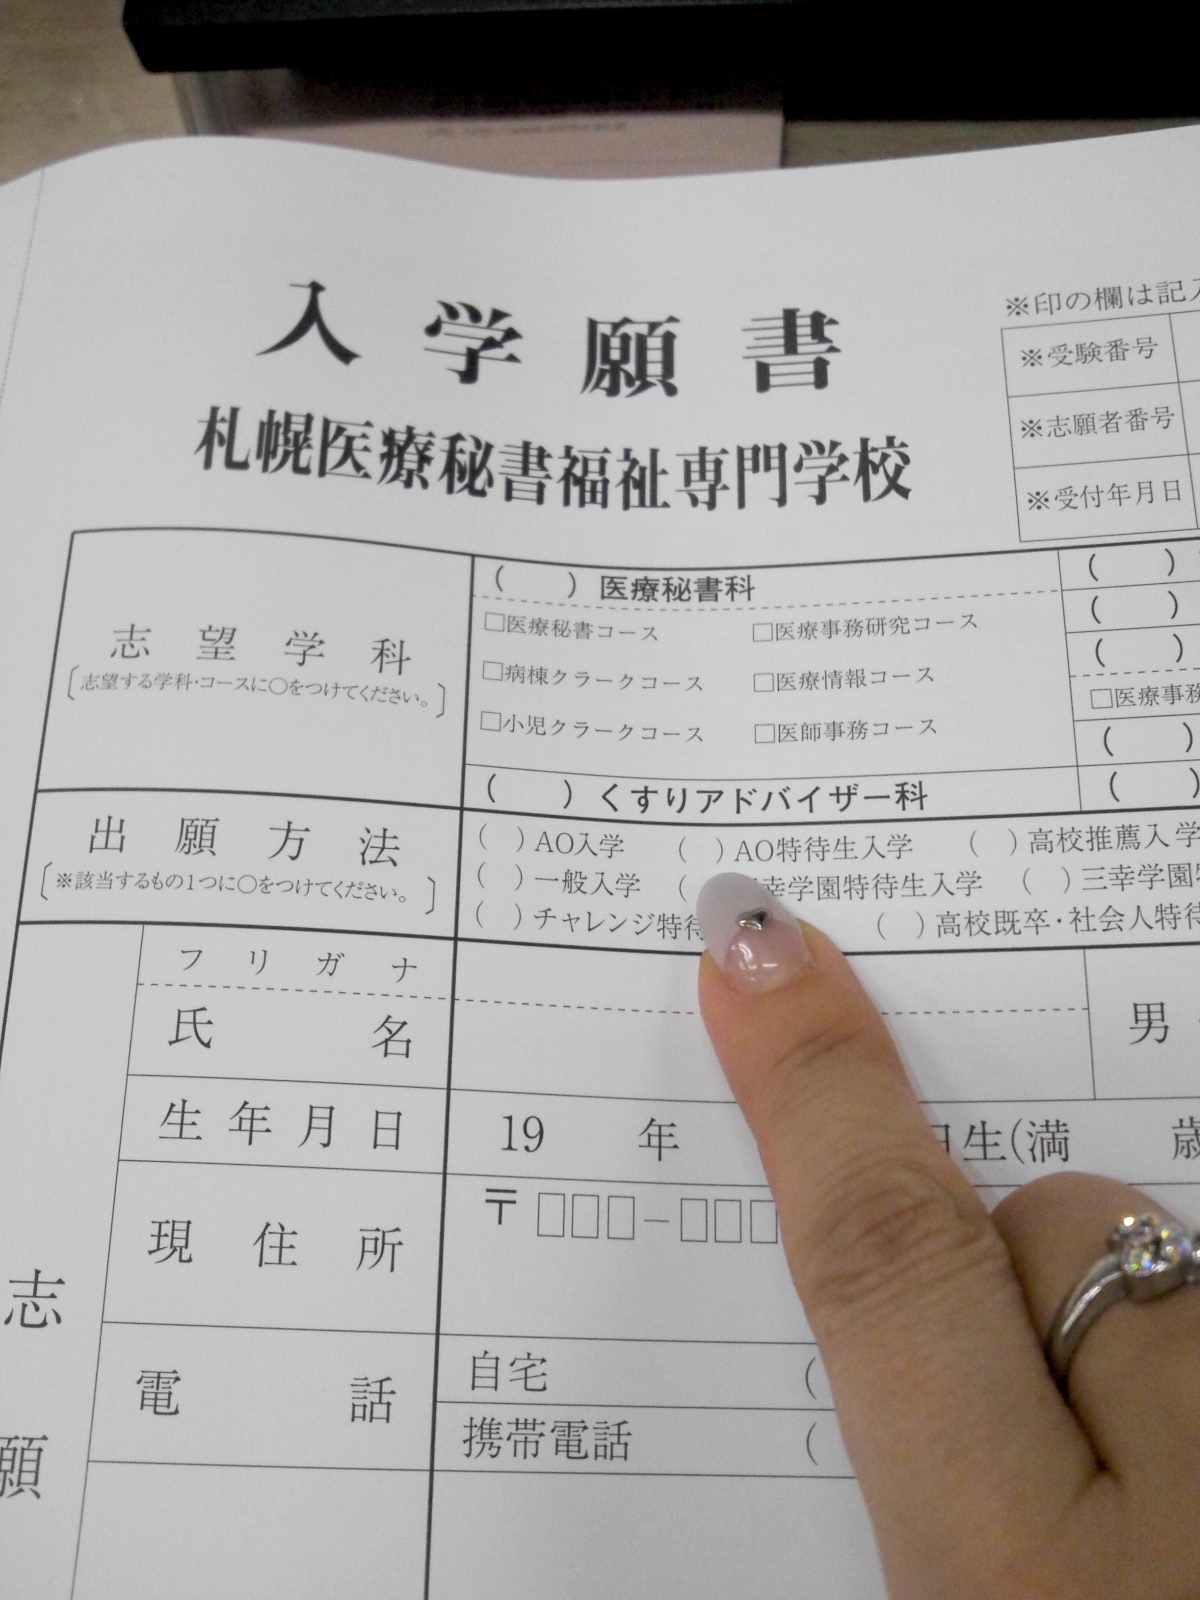 入学願書
札幌医療秘書福祉専門学校
※印の欄は記入
※受験番号
※志願者番号
※受付年月日
志望学科
〔志望する学科・コースに○をつけてください。〕
( ) 医療秘書科
□医療秘書コース □医療事務研究コース
□病棟クラークコース □医療情報コース
□小児クラークコース □医師事務コース
( ) くすりアドバイザー科
( )
( )
( )
□医療事務
( )
( )
出願方法
〔※該当するもの1つに○をつけてください。〕
( ) AO入学 ( ) AO特待生入学 ( ) 高校推薦入学
( ) 一般入学 ( 幸学園特待生入学 ( ) 三幸学園
( ) チャレンジ特待 ( ) 高校既卒・社会人特待
志願
フリガナ
氏名
男
生年月日
19 年 日生(満 歳
現住所
〒□□□-□□□
電話
自宅 (
携帯電話 (